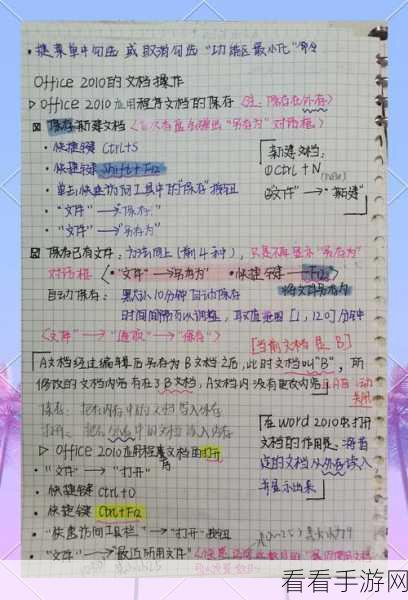 提菜单中勾选 或 取消勾选 "功能区最小化" 命令
Office 2010的文档操作
▷ office 2010应用程序文档的保存 (注: 保存在外存)
保存新建文档 (首次存盘会弹出"另存为"对话框)
• 快捷键 Ctrl+S
• 快捷键 Shift+F12
• 单击快速访问工具中的"保存"按钮
• "文件" → "保存"
• "文件" → "另存为"
新建文档:
①Ctrl+N
(new)
②"文件" → "新建"
保存已有文件: 方法同上 (前4种), 只是不再显示"另存为"
对话框
• "文件" → "另存为" • 快捷键 F12
将文件另存为
自动保存: 默认10分钟自动保存
时间间隔可以调整, 取值范围 [1,120] 分钟
<"文件" → "选项" → "保存">
[当前文档是B]
A文档经过编辑后另存为B文档之后, 此时文档叫"B", 所
修改的文档内容存在于B文档, A文档内没有更改内容
A自动
关闭
保存: 把内存中的文档写入外存
打开: 把外存中的文档读入内存
▷ Office 2010应用程序文档的打开
• "文件" → "打开"
• 快捷键 Ctrl+O
• 快捷键 Ctrl+F12
• "快速访问工具栏" → "打开"按钮
• "文件" → "最近所用文件"
在word 2010中打开
文档的作用是: 将指
定的文档从外存读入
并显示出来
看看手游网